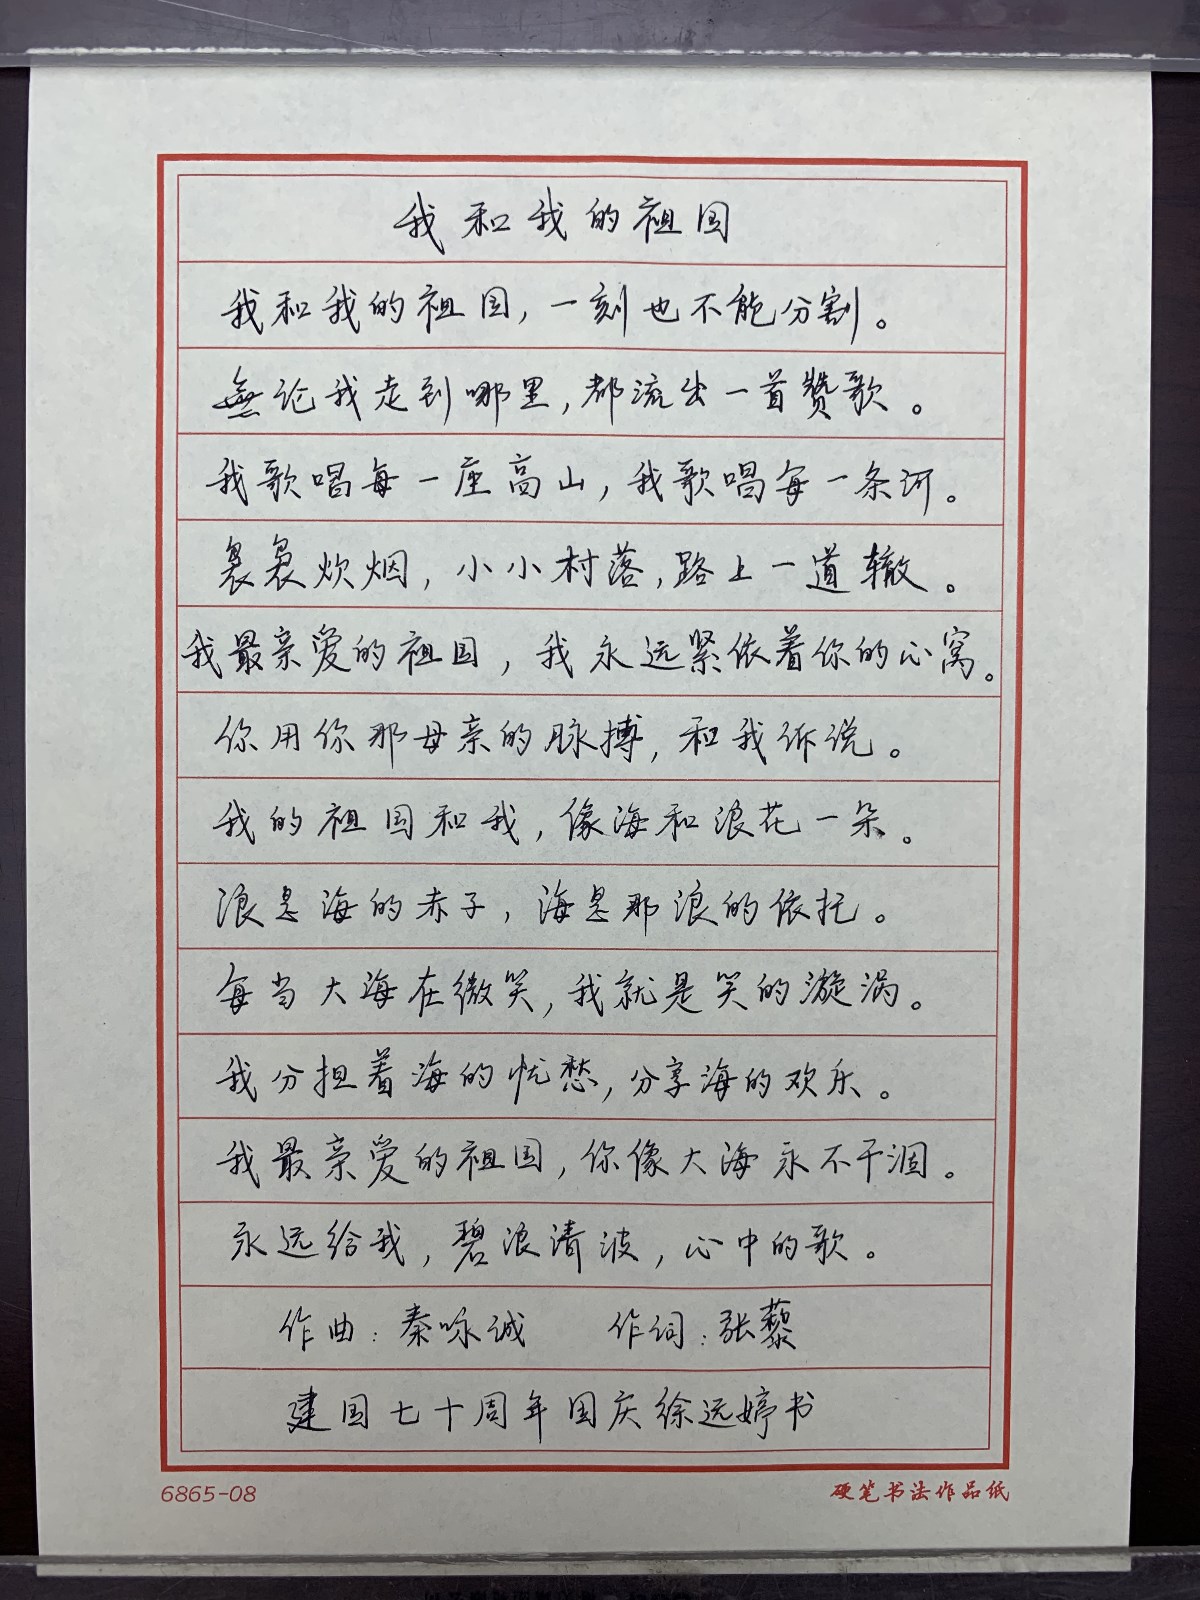 我和我的祖国
我和我的祖国，一刻也不能分割。
無论我走到哪里，都流出一首赞歌。
我歌唱每一座高山，我歌唱每一条河。
袅袅炊烟，小小村落，路上一道辙。
我最亲爱的祖国，我永远紧依着你的心窝。
你用你那母亲的脉搏，和我诉说。
我的祖国和我，像海和浪花一朵。
浪是海的赤子，海是那浪的依托。
每当大海在微笑，我就是笑的漩涡。
我分担着海的忧愁，分享海的欢乐。
我最亲爱的祖国，你像大海永不干涸。
永远给我，碧浪清波，心中的歌。
作曲：秦咏诚 作词：张藜
建国七十周年国庆徐远婷书
6865-08 硬笔书法作品纸